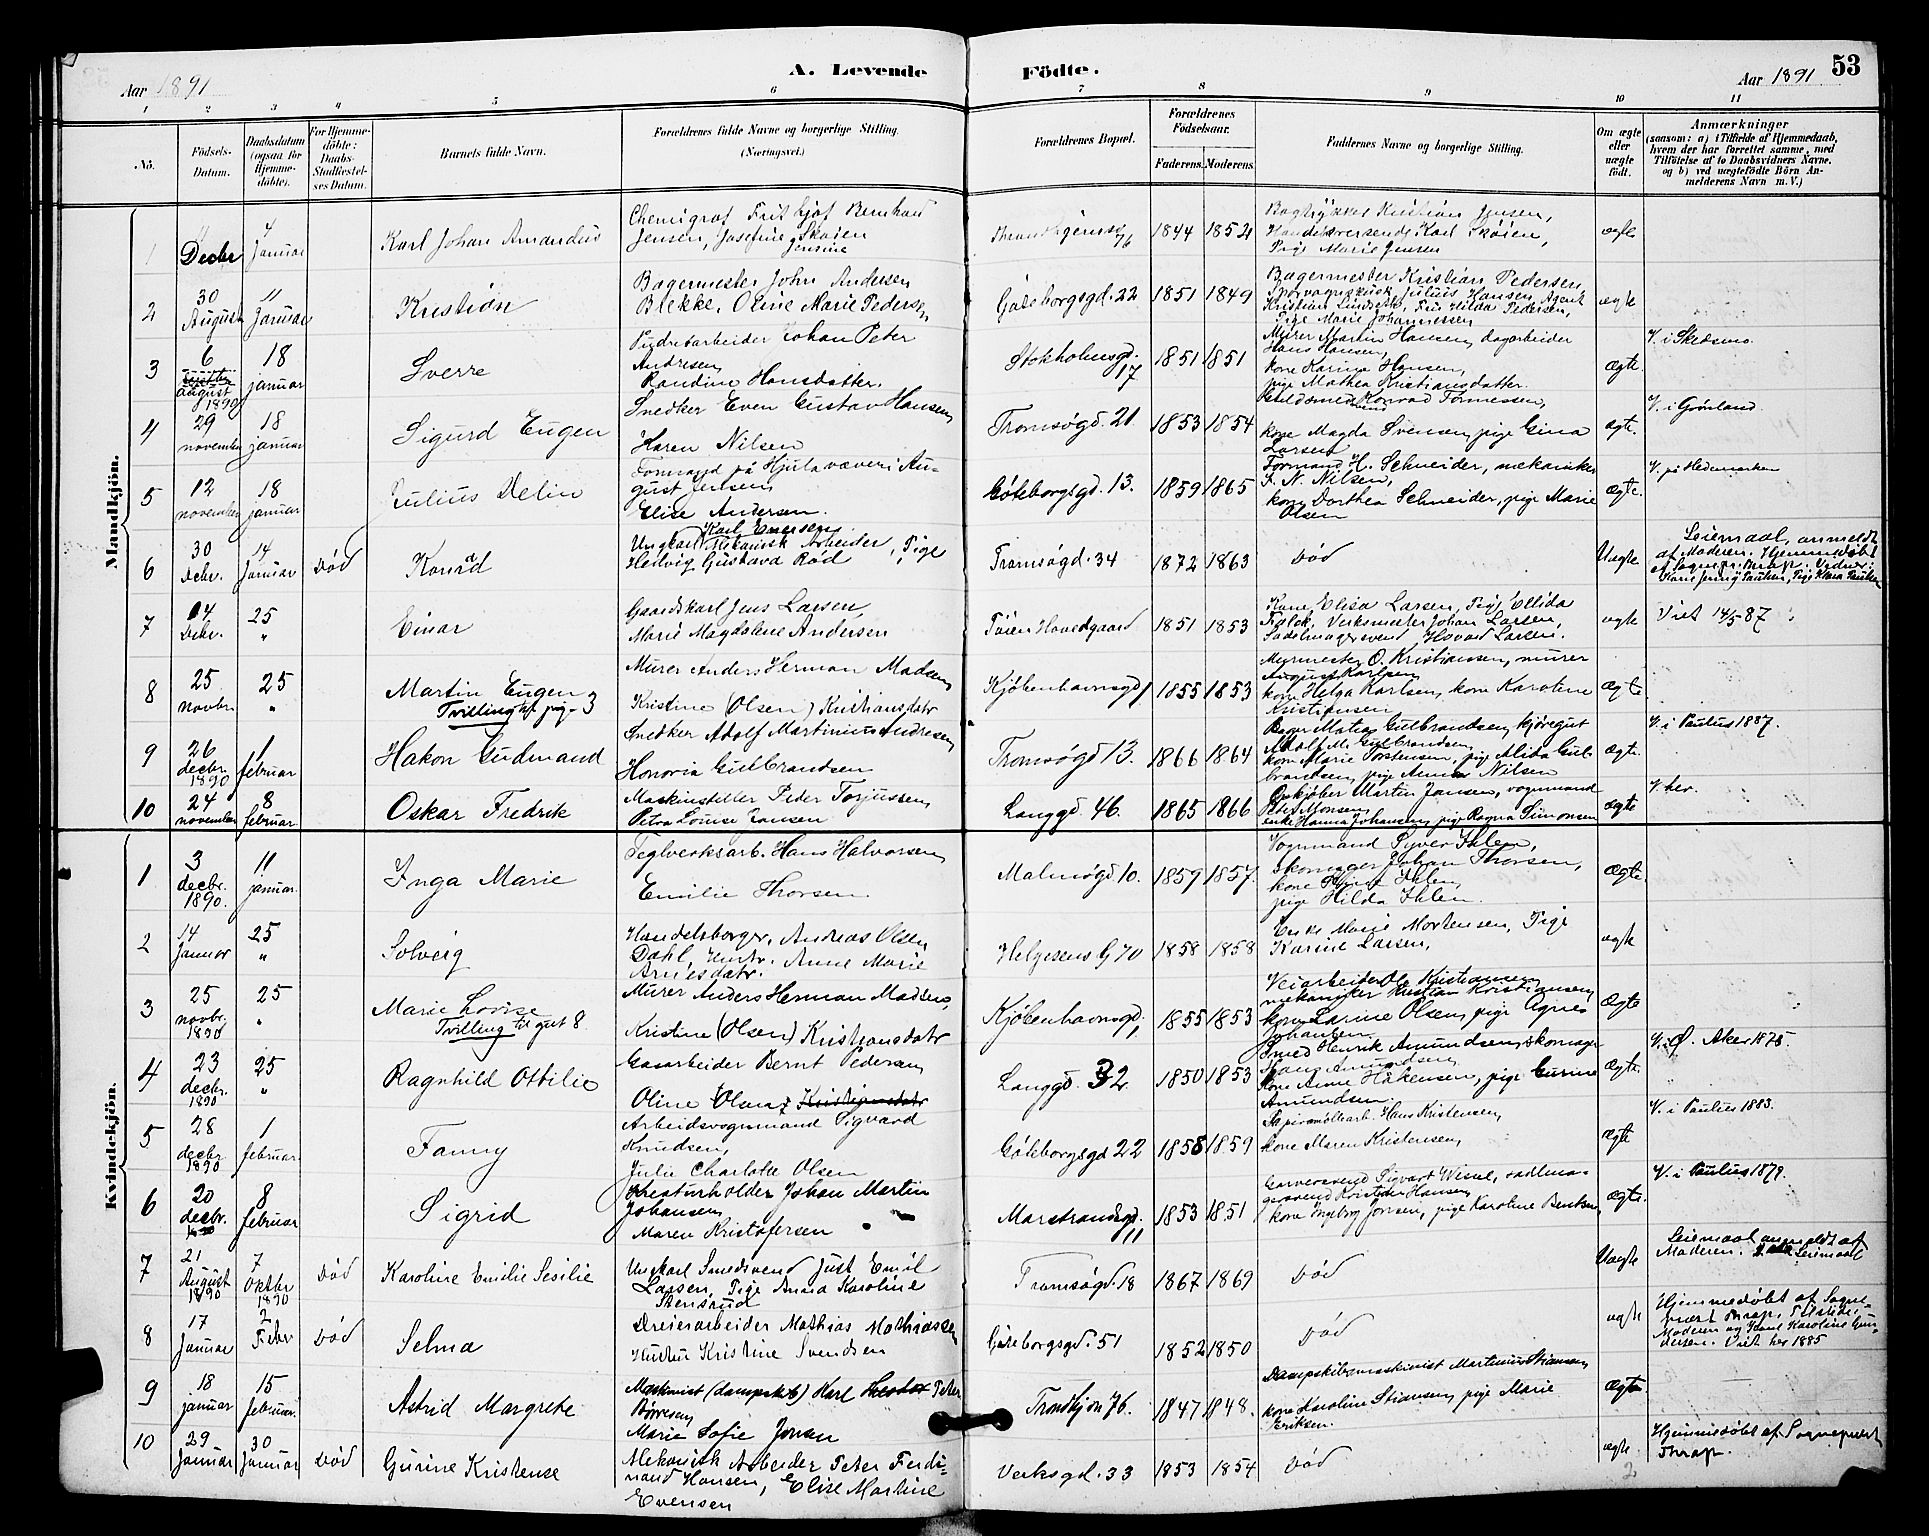 Aar 1891
A. Levende
Födte.
Aar 1891
53
1 2 3 4 5 6 7 8 9 10 11
No.
Födsels-
Datum.
Daabsdatum
(ogsaa for
Hjemme-
döbte).
For Hjemme-
döbte:
Daabs-
Stadfæstel-
ses Datum.
Barnets fulde Navn.
Forældrenes fulde Navne og borgerlige Stilling.
(Næringsvei.)
Forældrenes Bopæl.
Forældrenes
Födselsaar.
Faderens. Moderens.
Faddernes Navne og borgerlige Stilling.
Om ægte
eller
uægte
födt.
Anmærkninger
(saasom: a) i Tilfælde af Hjemmedaab,
hvem der har forrettet samme, med
Tilföielse af to Daabsvidners Navne,
og b) ved uægtefödte Börn An-
melderens Navn m. V.)
Mandkjön.
1
Decbr
4
Januar
Karl Johan Amandus
Chemigraf Frithjof Bernhard
Jensen, Josefine Skøien
Jensine
1844 1852
Kristian Jensen,
Handelsreisende Karl Skøien,
Pige Marie Jensen
ægte
2
30
August
11
Januar
Kristian
Bagermester John Andersen
Blekke, Oline Marie Pedersen
Göteborgsgd. 22
1851 1849
Bagermester Kristian Pedersen
Sporvognskusk Julius Hansen, Agent
Kristian Lindseth, Fru Hilda Pedersen,
Pige Marie Johannessen
ægte
3
6
august
1890
18
januar
Sverre
Pudretarbeider Johan Peter
Andresen
Randine Hansdatter.
Stokholmsgd.
17
1851 1851
Murer Martin Hansen, dagarbeider
Hans Hansen,
kone Karine Hansen,
pige Mathea Kristiansdatter.
Ægte.
V. i Skedsmo.
4
29
november
18
januar
Sigurd Eugen
Snedker Even Gustav Hansen
Karen Nilsen
Tromsögd. 21.
1853 1854
Konrad Tønnessen,
kone Magda Svensen, pige Gina
Larsen
Ægte.
V. i Grønland.
5
12
november
18
januar
Julius Delin
Formand på Hjula væveri Au-
gust Jensen
Elise Andersen.
Göteborgsgd. 13.
1859 1865
Formand H. Schneider, mekaniker
F. N. Nilsen,
kone Dorthea Schneider, pige Marie
Olsen
Ægte.
V. på Hedemarken
6
30
Debr.
14
Januar
Död
Konrad
Karl Enersen
Ungkarl Mekanisk Arbeider, Pige
Hedvig Gustava Röd
Tromsøgd. 34
1872 1863
Död
Uægte
Leiemaal, anmeldt
af Moderen. Hjemmedöbt
af Sognepr. Thrap. Vidner:
Pige Klara Paulsen
7
14
Debr.
25
"
Einar
Gaardskarl Jens Larsen,
Marie Magdalene Andersen
Töien Hovedgaard
1851 1853
Kone Elisa Larsen, Pige Ellida
Falck, Verksmester Johan Larsen,
Sadelmagersvend Havard Larsen.
ægte
Viet 14/5-87
8
25
novbr.
25
"
Martin Eugen
Tvilling t. pige 3
Murer Anders Herman Madsen
Kristine (Olsen) Kristiansdatr
Kjöbenhavnsgd. 1
1855 1853
Murmester O. Kristiansen, murer
August Karlsen
kone Helga Karlsen, kone Karoline
Kristiansen
Ægte
9
26
decbr.
1890
1
februar
Hakon Gudmand
Snedker Adolf Martinius Andresen
Honoria Gulbrandsen
Tromsögd 13.
1866 1864
Mathias Gulbrandsen, kjöregut
Adolf M. Gulbrandsen,
kone Marie Torstensen, pige Alida Gul-
brandsen, pige Anna Nilsen
Ægte.
V. i Paulus 1887.
10
24
november
8
februar
Oskar Fredrik
Maskinsteller Peder Torjussen,
Petra Louise Jansen
Langgd. 46.
1865 1866
Opkjöber Martin Jansen, vognmand
Peder Monsen,
enke Hanna Johansen, pige Ragna Simonsen
Ægte
V. her.
Kvindekjön.
1
3
decbr.
1890.
11
januar.
Inga Marie
Teglverksarb. Hans Halvorsen
Emilie Thorsen.
Malmögd 10.
1859 1857.
Vognmand Syver Ihlen,
skomager Johan Thorsen,
kone Ihlen,
pige Hilda Ihlen.
Ægte.
2
14
Januar
25
"
Solveig
Handelsborger, Andreas Olsen
Dahl, Hustr. Anne Marie
Arnesdatr.
Helgesens G 70
1858 1858
Enke Marie Mortensen, Pige
Karine Larsen,
ægte
3
25
novbr.
1890
25
"
Marie Lovise
Tvilling til gut 8.
Murer Anders Herman Madsen,
Kristine (Olsen) Kristiansdatr
Kjöbenhavnsgd.
1
1855 1853
Veiarbeider Ole Kristiansen,
mekaniker Kristian Kristiansen,
kone Larine Olsen, pige Agnes
Johansen.
Ægte
4
23
decbr.
1890
25
"
Ragnhild Ottilie
Gasarbeider Bernt Pedersen
Oline Olava Kristiansdatr
Langgd. 32
1850 1853
Smed Henrik Amundsen, skomager
Hans Amundsen
kone Anne Håkensen, pige Gurine
Amundsen.
Ægte.
V. i Ø. Aker 1878.
5
28
decbr.
1890
1
februar
Fanny
Arbeidsvognmand Sigvard
Knudsen,
Julie Charlotte Olsen
Göteborgsgd 22
1858 1859
Papirmöllearb. Hans Kristensen,
kone Maren Kristensen,
Ægte
V. i Paulus 1883.
6
20
decbr.
8
februar
Sigrid
Kreaturholder Johan Martin
Johansen
Maren Kristofersen
Marstrandsgd.
11
1853 1851
Garversvend Sigvart Wisel, sadelma-
gersvend Kristian Hansen,
kone Ingeborg Jonsen, pige Karoline Bentsen
Ægte.
V. i Paulus 1879.
7
21
August
1890
7
Oktbr
1890
Död
Karoline Emilie Sesilie
Ungkarl Smedsvend Just Emil
Larsen, Pige Anna Karoline
Stensrud
Tromsögd. 18
1867 1869
Död
Uægte
Leiemaal anmeldt af
Moderen. 2det Leiemaal
8
17
Januar
2
Febr
Död
Selma
Dreierarbeider Mathias Mathiassen
Hustru Kristine Svendsen
Göteborgsgd. 51
1852 1850
Död
ægte
Hjemmedöbt af Sogne-
præst Thrap. Tilstede:
Moderen og Karoline Gun-
dersen. Viet her 1885
9
18
januar
15
februar.
Astrid Margrete
Maskinist (dampskib) Karl Peter
Börresen
Marie Sofie Jonsen
Trondhjem 76.
1847 1848.
Dampskibsmaskinist Martinius Stiansen,
kone Karoline Stiansen, pige Marie
Eriksen.
Ægte
10
29
Januar
30
Januar
Död
Gurine Kristense
Mekanisk Arbeider Peter Ferdi-
nand Hansen, Elise Martine
Evensen
Verksgd. 33
1853 1854
Död
ægte.
Hjemmedöbt af Sognepræst
Thrap.
2